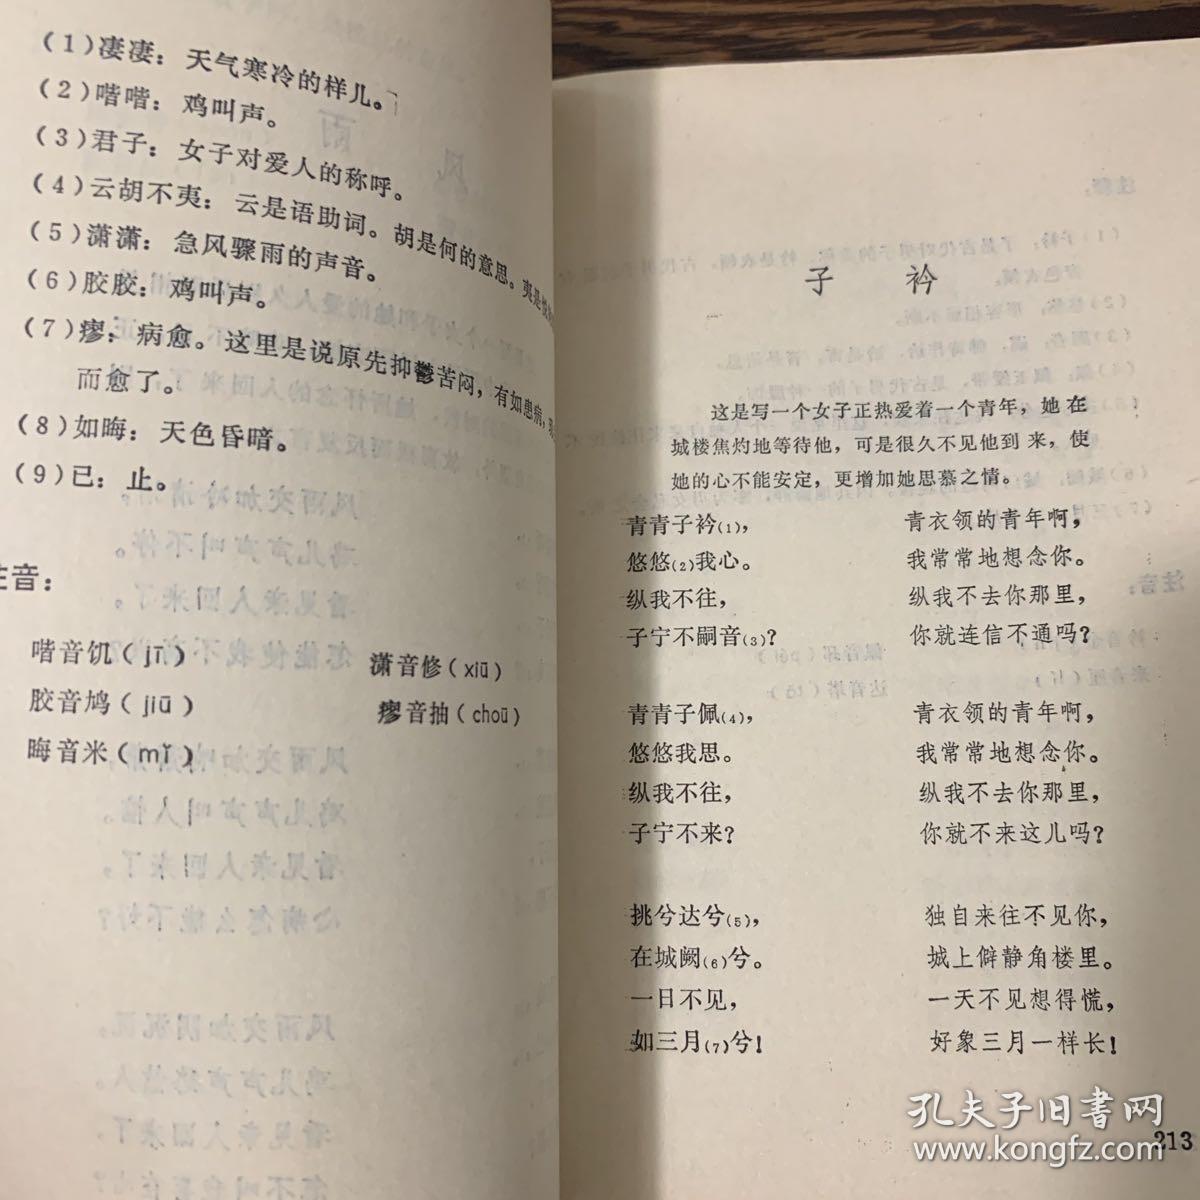 (1)凄凄：天气寒冷的样儿。
(2)喈喈：鸡叫声。
(3)君子：女子对爱人的称呼。
(4)云胡不夷：云是语助词。胡是何的意思。夷是
(5)潇潇：急风骤雨的声音。
(6)胶胶：鸡叫声。
(7)瘳：病愈。这里是说原先抑鬱苦闷，有如患病，现
而愈了。
(8)如晦：天色昏暗。
(9)已：止。
注音：
喈音饥(jī) 潇音修(xiū)
胶音鸠(jiū) 瘳音抽(choū)
晦音米(mǐ)
子 衿
这是写一个女子正热爱着一个青年，她在
城楼焦灼地等待他，可是很久不见他到来，使
她的心不能安定，更增加她思慕之情。
青青子衿(1)， 青衣领的青年啊，
悠悠(2)我心。 我常常地想念你。
纵我不往， 纵我不去你那里，
子宁不嗣音(3)？ 你就连信不通吗？
青青子佩(4)， 青衣领的青年啊，
悠悠我思。 我常常地想念你。
纵我不往， 纵我不去你那里，
子宁不来？ 你就不来这儿吗？
挑兮达兮(5)， 独自来往不见你，
在城阙(6)兮。 城上僻静角楼里。
一日不见， 一天不见想得慌，
如三月(7)兮！ 好象三月一样长！
213
孔夫子旧书网
www.kongfz.com